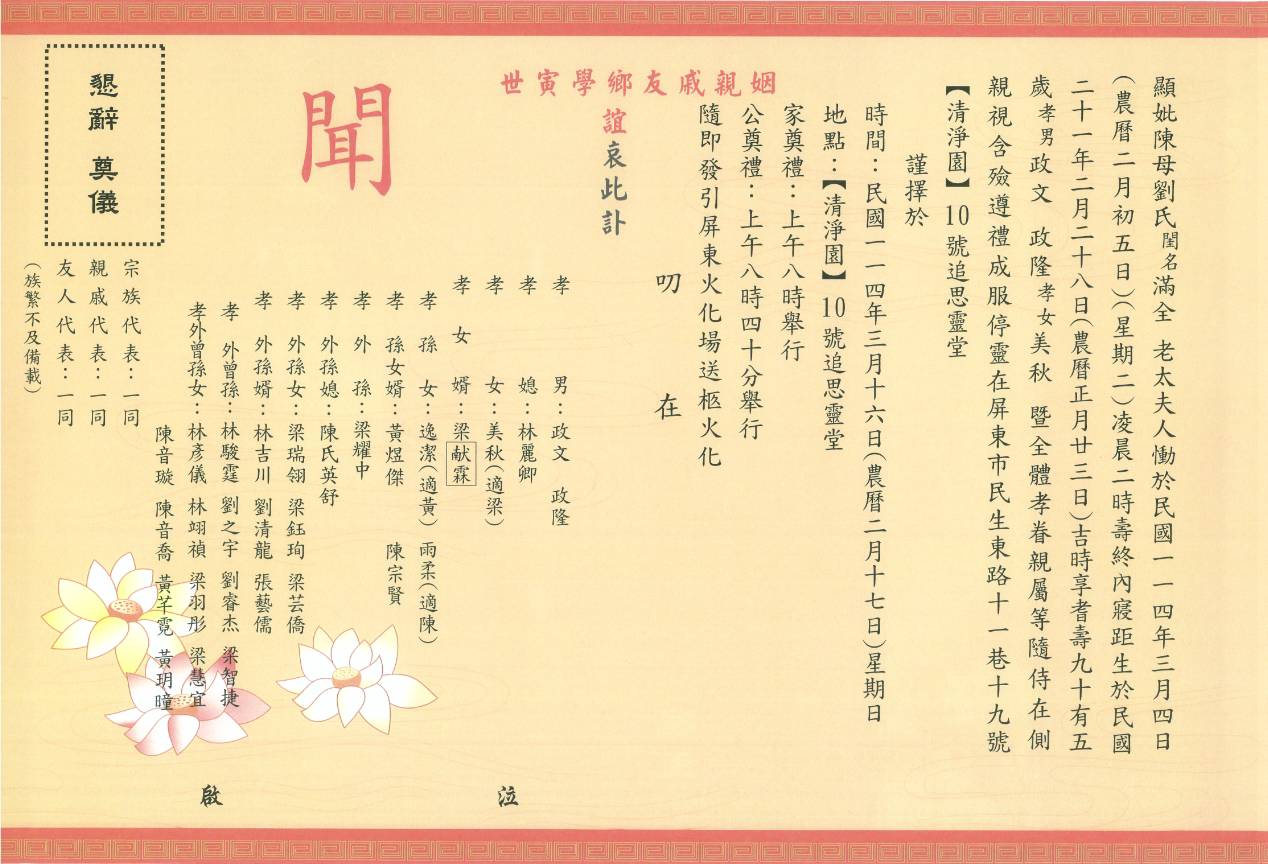 顯妣陳母劉氏閨名滿全 老太夫人慟於民國一一四年三月四日
(農曆二月初五日)(星期二)凌晨二時壽終內寢距生於民國
二十一年二月二十八日(農曆正月廿三日)吉時享耆壽九十有五
歲孝男政文 政隆孝女美秋 暨全體孝眷親屬等隨侍在側
親視含殮遵禮成服停靈在屏東市民生東路十一巷十九號
【清淨園】10號追思靈堂
謹擇於
時間：民國一一四年三月十六日(農曆二月十七日)星期日
地點：【清淨園】10號追思靈堂
家奠禮：上午八時舉行
公奠禮：上午八時四十分舉行
隨即發引屏東火化場送柩火化
叨在
世寅學鄉友戚親姻
誼哀此訃
聞
孝男：政文 政隆
孝媳：林麗卿
孝女：美秋(適梁)
孝女婿：梁献霖
孝孫女：逸潔(適黃) 雨柔(適陳)
孝孫女婿：黃煜傑 陳宗賢
孝外孫：梁耀中
孝外孫媳：陳氏英舒
孝外孫女：梁瑞翎 梁鈺珣 梁芸僑
孝外孫婿：林吉川 劉清龍 張藝儒
孝外曾孫：林駿霆 劉之宇 劉睿杰 梁智捷
孝外曾孫女：林彥儀 林翊禎 梁羽彤 梁慧宜
陳音璇 陳音喬 黃芊霓 黃玥曈
泣
啟
宗族代表：一同
親戚代表：一同
友人代表：一同
(族繁不及備載)
懇辭 奠儀